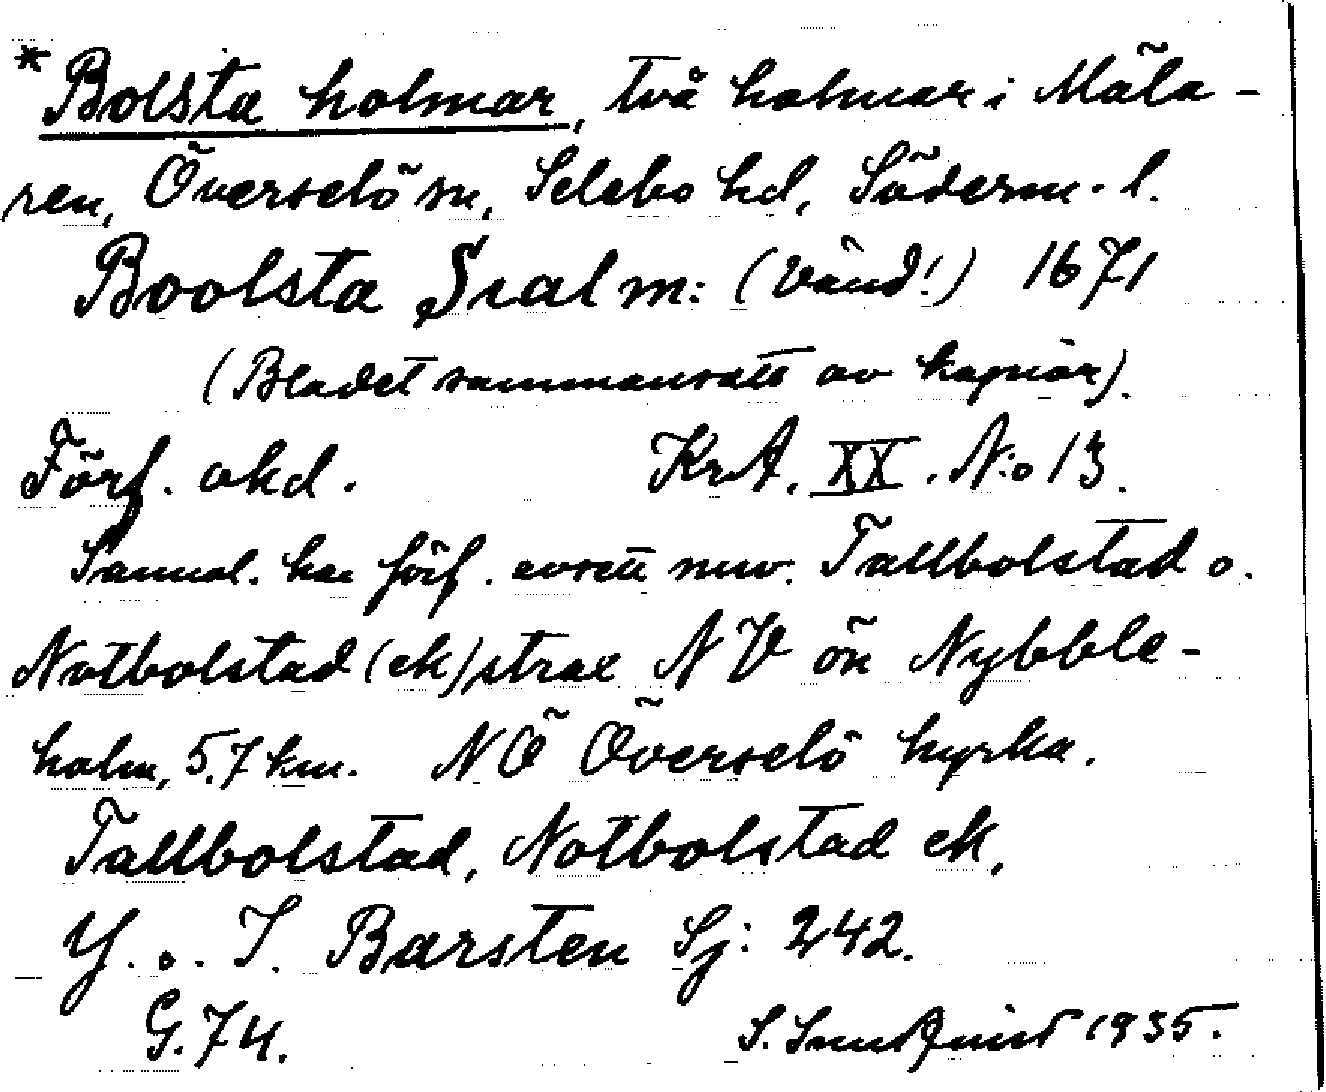 *Bolsta holmar, två holmar i Mäla-
ren, Överselö sn, Selebo hd, Söderm. l.
Boolsta Sialm: (Vänd!) 1671
(Bladet sammansatt av kopior).
Förf. okd. KrA. XX. N:o 13.
Sannol. har förf. avsett nuv. Tallbolstad o.
Notbolstad (ek) strax NV ön Nybble-
holm, 5,7 km. NÖ Överselö kyrka.
Tallbolstad, Notbolstad ek,
Y. o. I. Barsten Sj: 242.
G. 74. S. 1935.